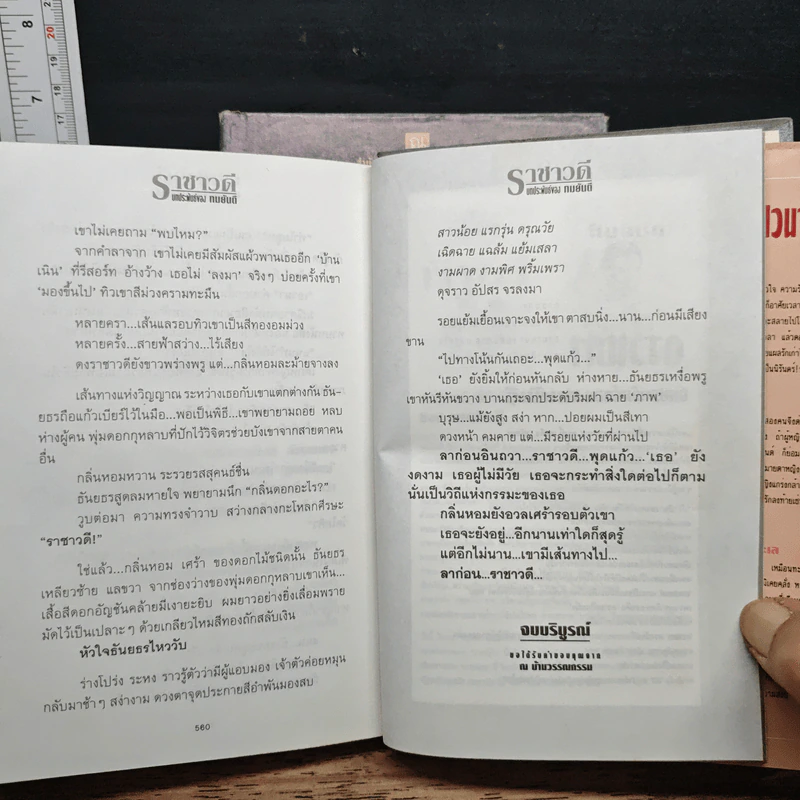 ราชาวดี
บทประพันธ์ของ ทมยันตี
เขาไม่เคยถาม “พบไหม?”
จากคำลาจาก เขาไม่เคยมีสัมผัสแผ้วพานเธออีก ‘บ้าน
เนิน’ ที่รีสอร์ท อ้างว้าง เธอไม่ ‘ลงมา’ จริงๆ บ่อยครั้งที่เขา
‘มองขึ้นไป’ ทิวเขาสีม่วงครามทะมึน
หลายครา...เส้นแลรอบทิวเขาเป็นสีทองอมม่วง
หลายครั้ง...สายฟ้าสว่าง...ไร้เสียง
ดงราชาวดียังขาวพร่างพรู แต่...กลิ่นหอมละม้ายจางลง
เส้นทางแห่งวิญญาณ ระหว่างเธอกับเขาแตกต่างกัน ธัน-
ยธรถือแก้วเบียร์ไว้ในมือ...พอเป็นพิธี...เขาพยายามถอย หลบ
ห่างผู้คน พุ่มดอกกุหลาบที่ปักไว้วิจิตรช่วยบังเขาจากสายตาคน
อื่น
กลิ่นหอมหวาน ระรวยรสสุคนธ์ชื่น
ธันยธรสูดลมหายใจ พยายามนึก “กลิ่นดอกอะไร?”
วูบต่อมา ความทรงจำวาบ สว่างกลางกะโหลกศีรษะ
“ราชาวดี!”
ใช่แล้ว...กลิ่นหอม เศร้า ของดอกไม้ชนิดนั้น ธันยธร
เหลียวซ้าย แลขวา จากช่องว่างของพุ่มดอกกุหลาบเขาเห็น...
เสื้อสีดอกอัญชันคล้ายมีเงายะยิบ ผมยาวอย่างยิ่งเลื่อมพราย
มัดไว้เป็นเปลาะๆ ด้วยเกลียวไหมสีทองถักสลับเงิน
หัวใจธันยธรไหววับ
ร่างโปร่ง ระหง ราวรู้ตัวว่ามีผู้แอบมอง เจ้าตัวค่อยหมุน
กลับมาช้าๆ สง่างาม ดวงตาจุดประกายสีอำพันมองสบ
560
ราชาวดี
บทประพันธ์ของ ทมยันตี
สาวน้อย แรกรุ่น ดรุณวัย
เฉิดฉาย แฉล้ม แย้มเสลา
งามผาด งามพิศ พริ้มเพรา
ดุจราว อัปสร จรลงมา
รอยแย้มเยื้อนเจาะจงให้เขา ตาสบนิ่ง...นาน...ก่อนมีเสียง
ขาน
“ไปทางโน้นกันเถอะ...พุดแก้ว...”
‘เธอ’ ยังยิ้มให้ก่อนหันกลับ ห่างหาย...ธันยธรเหงื่อพรู
เขาหันรีหันขวาง บานกระจกประดับริมฝา ฉาย ‘ภาพ’
บุรุษ...แม้ยังสูง สง่า หาก...ปอยผมเป็นสีเทา
ดวงหน้า คมคาย แต่...มีรอยแห่งวัยที่ผ่านไป
ลาก่อนอินถวา...ราชาวดี...พุดแก้ว...‘เธอ’ ยัง
งดงาม เธอผู้ไม่มีวัย เธอจะกระทำสิ่งใดต่อไปก็ตาม
นั่นเป็นวิถีแห่งกรรมะของเธอ
กลิ่นหอมยังอวลเศร้ารอบตัวเขา
เธอจะยังอยู่...อีกนานเท่าใดก็สุดรู้
แต่อีกไม่นาน...เขามีเส้นทางไป...
ลาก่อน...ราชาวดี...
จบบริบูรณ์
ขอได้รับคำขอบคุณจาก
ณ บ้านวรรณกรรม